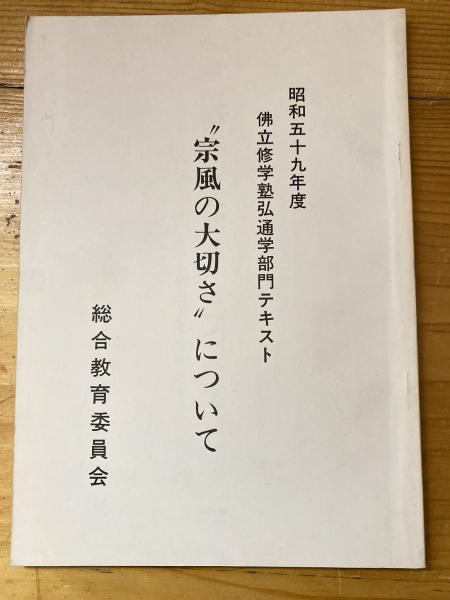 昭和五十九年度
佛立修学塾弘通学部門テキスト
〝宗風の大切さ〟について
総合教育委員会